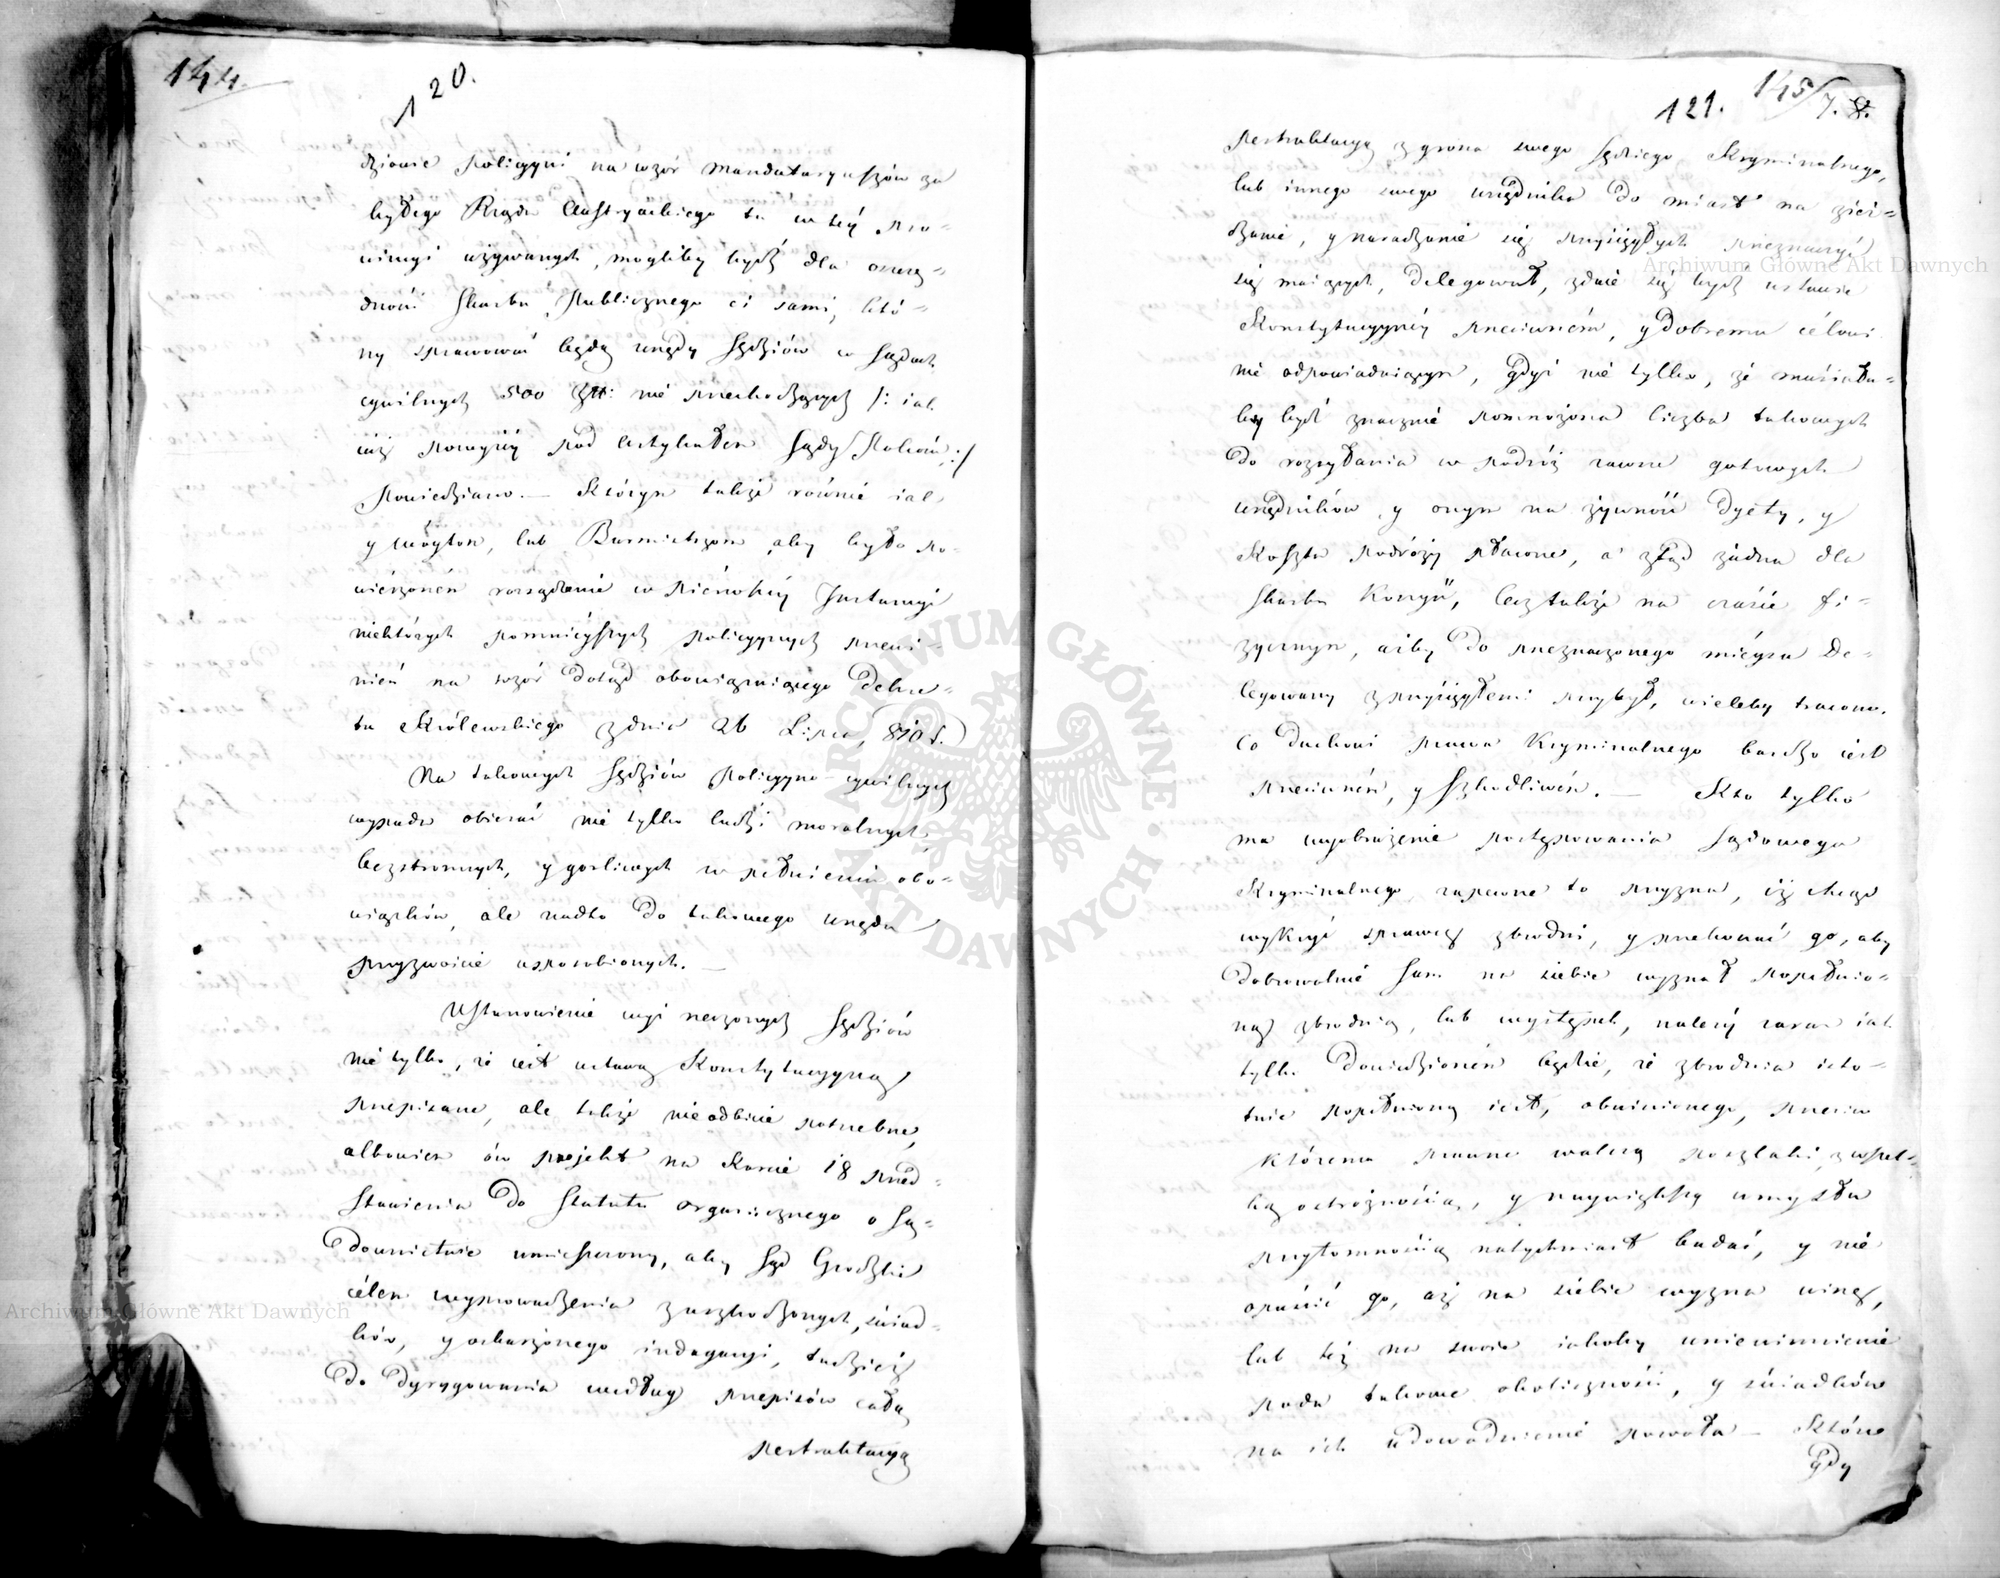 144.
120.
dziowie Policyyni na wzór Mandataryuszów za
byłego Rządu Austryackiego tu w tey Pro-
wincyi używanych, mogliby bydź dla oszczę-
dności Skarbu Publicznego ci sami, któ-
rzy sprawować będą urzędy Sędziów w Sądach
cywilnych 500 Złł: nie przechodzących /: iak
iuż powyżéy pod Artykułem Sądy Pokoiu :/
powiedziano. — Którym także równie iak
y Wóytom, lub Burmistrzom aby było po-
wierzoném rozsądzenie w Piérwszéy Instancyi
niektórych pomnieyszych policyynych przewi-
nień na wzór dotąd obowiązuiącego Dekre-
tu Królewskiego z dnia 26 Lipca 810 r.
Na takowych Sędziów Policyyno-cywilnych
wypada obierać nie tylko ludzi moralnych,
bezstronnych, y gorliwych w pełnieniu obo-
wiązków, ale nadto do takowego urzędu
przyzwoicie usposobionych. —
Ustanowienie wyż rzeczonych Sędziów
nie tylko, że iest ustawą Konstytucyyną
przepisane, ale także nieodbicie potrzebne,
albowiem ów projekt na Karcie 18 przed-
stawienia do Statutu organicznego o Są-
downictwie umieszczony, aby Sąd Grodzki
célem wyprowadzenia z uszkodzonych, świad-
ków, y oskarżonego indagacyi, tudzież
do dyrygowania według przepisów całą
pertraktacyą
121.
145/7. 8.
Pertraktacyą z grona swego Sędziego Kryminalnego,
lub innego swego urzędnika do miast na zież-
dzanie, y naradzanie się przysięgłych przeznaczyć
się maiących, delegował, zdaie się bydź ustawie
Konstytucyynéy przeciwném, y dobremu célowi
nie odpowiadaiącym, gdyż nie tylko, że musiała-
by bydź znacznie pomnożona liczba takowych
do rozsyłania w podróż zawsze gotowych
urzędników y onym na żywność dyety, y
Koszta podróży płacone, a ztąd żadna dla
Skarbu Korzyść, lecz także na czasie fi-
zycznym, niżby do przeznaczonego mieysca De-
legowany z przysięgłemi przybył, wieleby tracono.
Co duchowi prawa Kryminalnego bardzo iest
przeciwném, y szkodliwém. — Kto tylko
ma wyobrażenie postępowania Sądowego
Kryminalnego, zapewne to przyzna, iż chcąc
wykryć sprawcę zbrodni, y przekonać go, aby
dobrowolnie sam na siebie wyznał popełnio-
ną zbrodnią, lub występek, należy zaraz iak
tylko dowiedzioném będzie, że zbrodnia isto-
tnie popełnioną iest, obwinionego, przeciw
któremu prawne walczą poszlaki, z wszel-
ką ostrożnością, y naywiększą umysłu
przytomnością natychmiast badać, y nie
opuścić go, aż na siebie wyzna winę,
lub też na swoie iakoby uniewinnienie
poda takowe okoliczności, y świadków
na ich udowodnienie powoła — Które
gdy